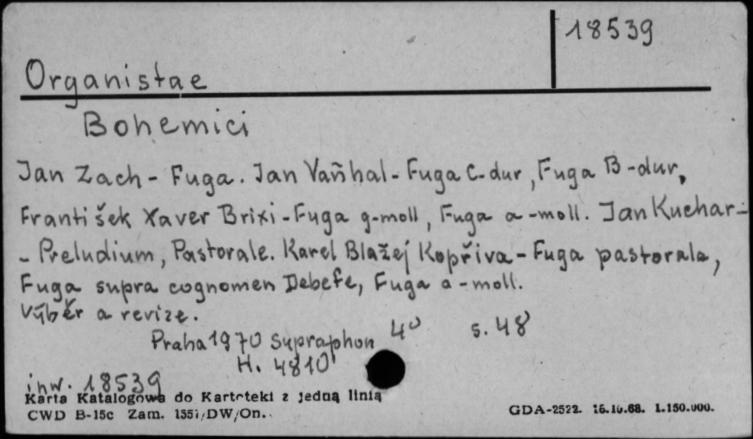 18539
Organistae
Bohemici
Jan Zach - Fuga. Jan Vaňhal - Fuga C-dur, Fuga B-dur,
František Xaver Brixi - Fuga g-moll, Fuga a-moll. Jan Kuchař -
- Preludium, Pastorale. Karel Blažej Kopřiva - Fuga pastorale,
Fuga supra cognomen Debefe, Fuga a-moll.
Výběr a revize.
Praha 1970 Supraphon 4° s. 48
H. 4810
inw. 18539
Karta Katalogowa do Kartoteki z jedną linią
CWD B-15c Zam. DW/On.
GDA-2522. 16.10.68. 1.150.000.